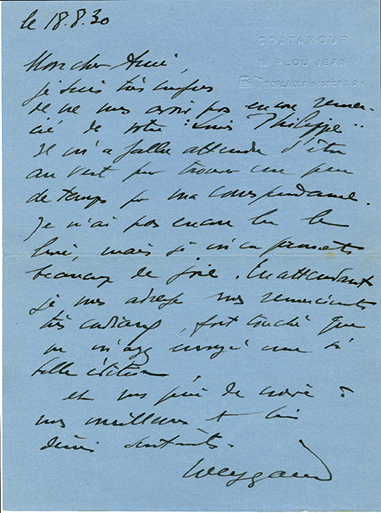 le 18.8.30
COATAMOUR
PLOUJEAN
Mon cher Ami,
je suis très confus
de ne vous avoir pas encore remer-
cié de votre "Louis Philippe".
Il m'a fallu attendre d'être
au vert pour trouver un peu
de temps pr ma correspondance.
Je n'ai pas encore lu le
livre, mais je m'en promets
beaucoup de joie. En attendant
je vous adresse mes remerciements
très cordiaux, fort touché que
vous m'ayez envoyé une si
belle édition
et vous prie de croire à
mes meilleurs et bien
dévoués sentiments.
Weygand